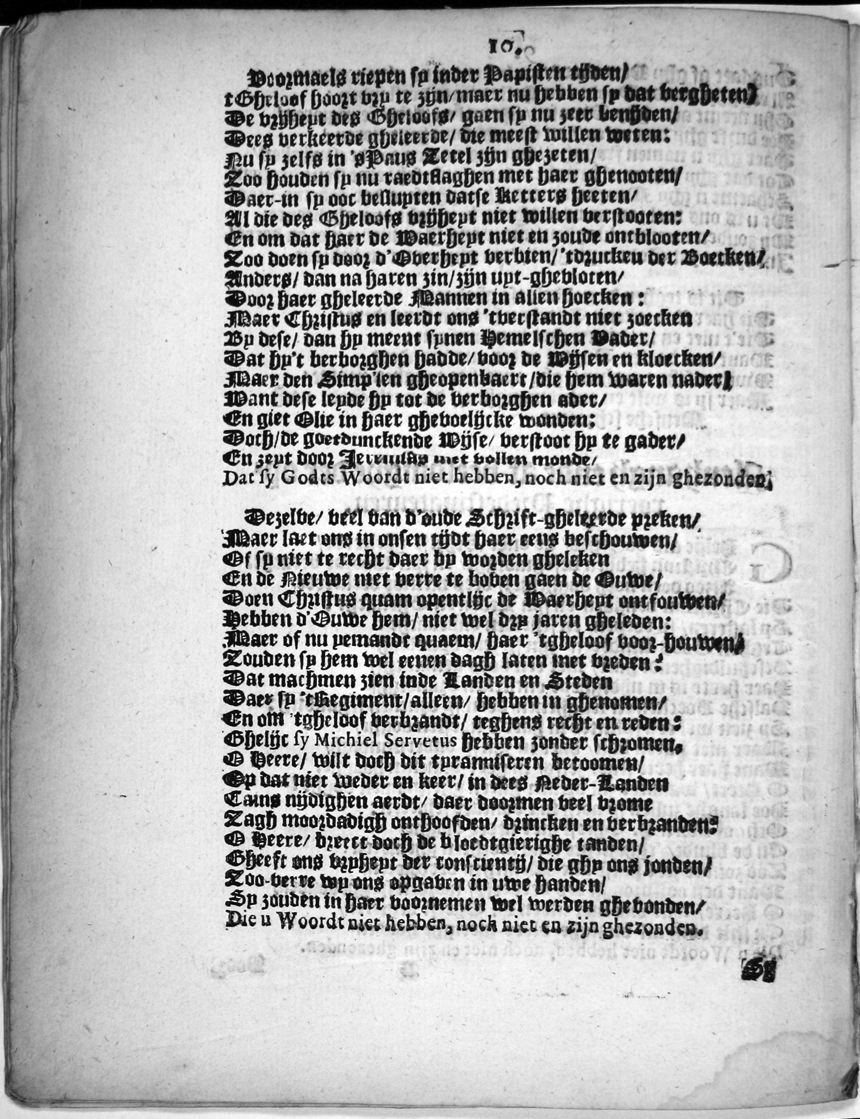 10.
Voormaels riepen sy inder Papisten tijden/
tGheloof hoort vry te zijn/maer nu hebben sy dat vergheten/
De vrijheyt des Gheloofs/ gaen sy nu zeer benijden/
Dees verkeerde gheleerde/ die meest willen weten:
Nu sy zelfs in 'sPaus Zetel zijn ghezeten/
Zoo houden sy nu raedtslaghen met haer ghenooten/
Daer-in sy ooc besluyten datse Ketters heeten/
Al die des Gheloofs vrijheyt niet willen verstooten:
En om dat haer de Waerheyt niet en zoude ontblooten/
Zoo doen sy door d'Overheyt verbien/ 'tdrucken der Boecken/
Anders/ dan na haren zin/zijn uyt-ghevloten/
Door haer gheleerde Mannen in allen hoecken:
Maer Christus en leerdt ons 'tverstandt niet zoecken
By dese/ dan hy meent synen Hemelschen Vader/
Dat hy't verborghen hadde/ voor de Wijsen en kloecken/
Maer den Simp'len gheopenbaert/die hem waren nader/
Want dese leyde hy tot de verborghen ader/
En giet Olie in haer ghevoelijcke wonden:
Doch/de goetdunckende Wijse/ verstoot hy te gader/
En zeyt door Jeremias met vollen monde/
Dat sy Godts Woordt niet hebben, noch niet en zijn ghezonden.
Dezelve/ veel van d'oude Schrift-gheleerde preken/
Maer laet ons in onsen tijdt haer eens beschouwen/
Of sy niet te recht daer by worden gheleken
En de Nieuwe niet verre te boven gaen de Ouwe/
Doen Christus quam opentlijc de Waerheyt ontfouwen/
Hebben d'Ouwe hem/ niet wel dry jaren gheleden:
Maer of nu yemandt quaem/ haer 'tgheloof voor-houwen/
Zouden sy hem wel eenen dagh laten met vreden?
Dat machmen zien inde Landen en Steden
Daer sy 'tRegiment/alleen/ hebben in ghenomen/
En om 'tgheloof verbrandt/ teghens recht en reden:
Ghelijc sy Michiel Servetus hebben zonder schromen.
O Heere/ wilt doch dit tyranniseren betoomen/
Op dat niet weder en keer/ in dees Neder-Landen
Cains nijdighen aerdt/ daer doormen veel vrome
Zagh moordadigh onthoofden/ drincken en verbranden:
O Heere/ breect doch de bloedtgierighe tanden/
Gheeft ons vryheyt der conscientij/ die ghy ons jonden/
Zoo-verre wy ons opgaven in uwe handen/
Sy zouden in haer voornemen wel werden ghebonden/
Die u Woordt niet hebben, noch niet en zijn ghezonden.